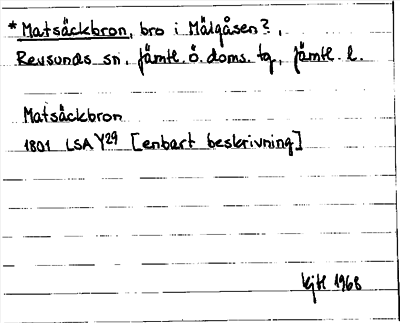 * Matsäckbron, bro i Mälgåsen?,
Revsunds sn. Jämtl. ö. doms. tg, Jämtl. l.
Matsäckbron
1801 LSA Y29 [enbart beskrivning]
kjtl 1968